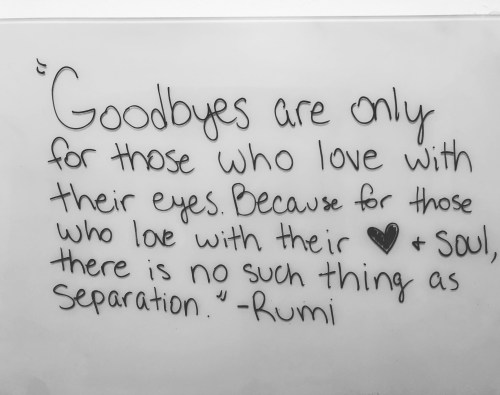 "Goodbyes are only
for those who love with
their eyes. Because for those
who love with their ♥ + Soul,
there is no such thing as
Separation." -Rumi